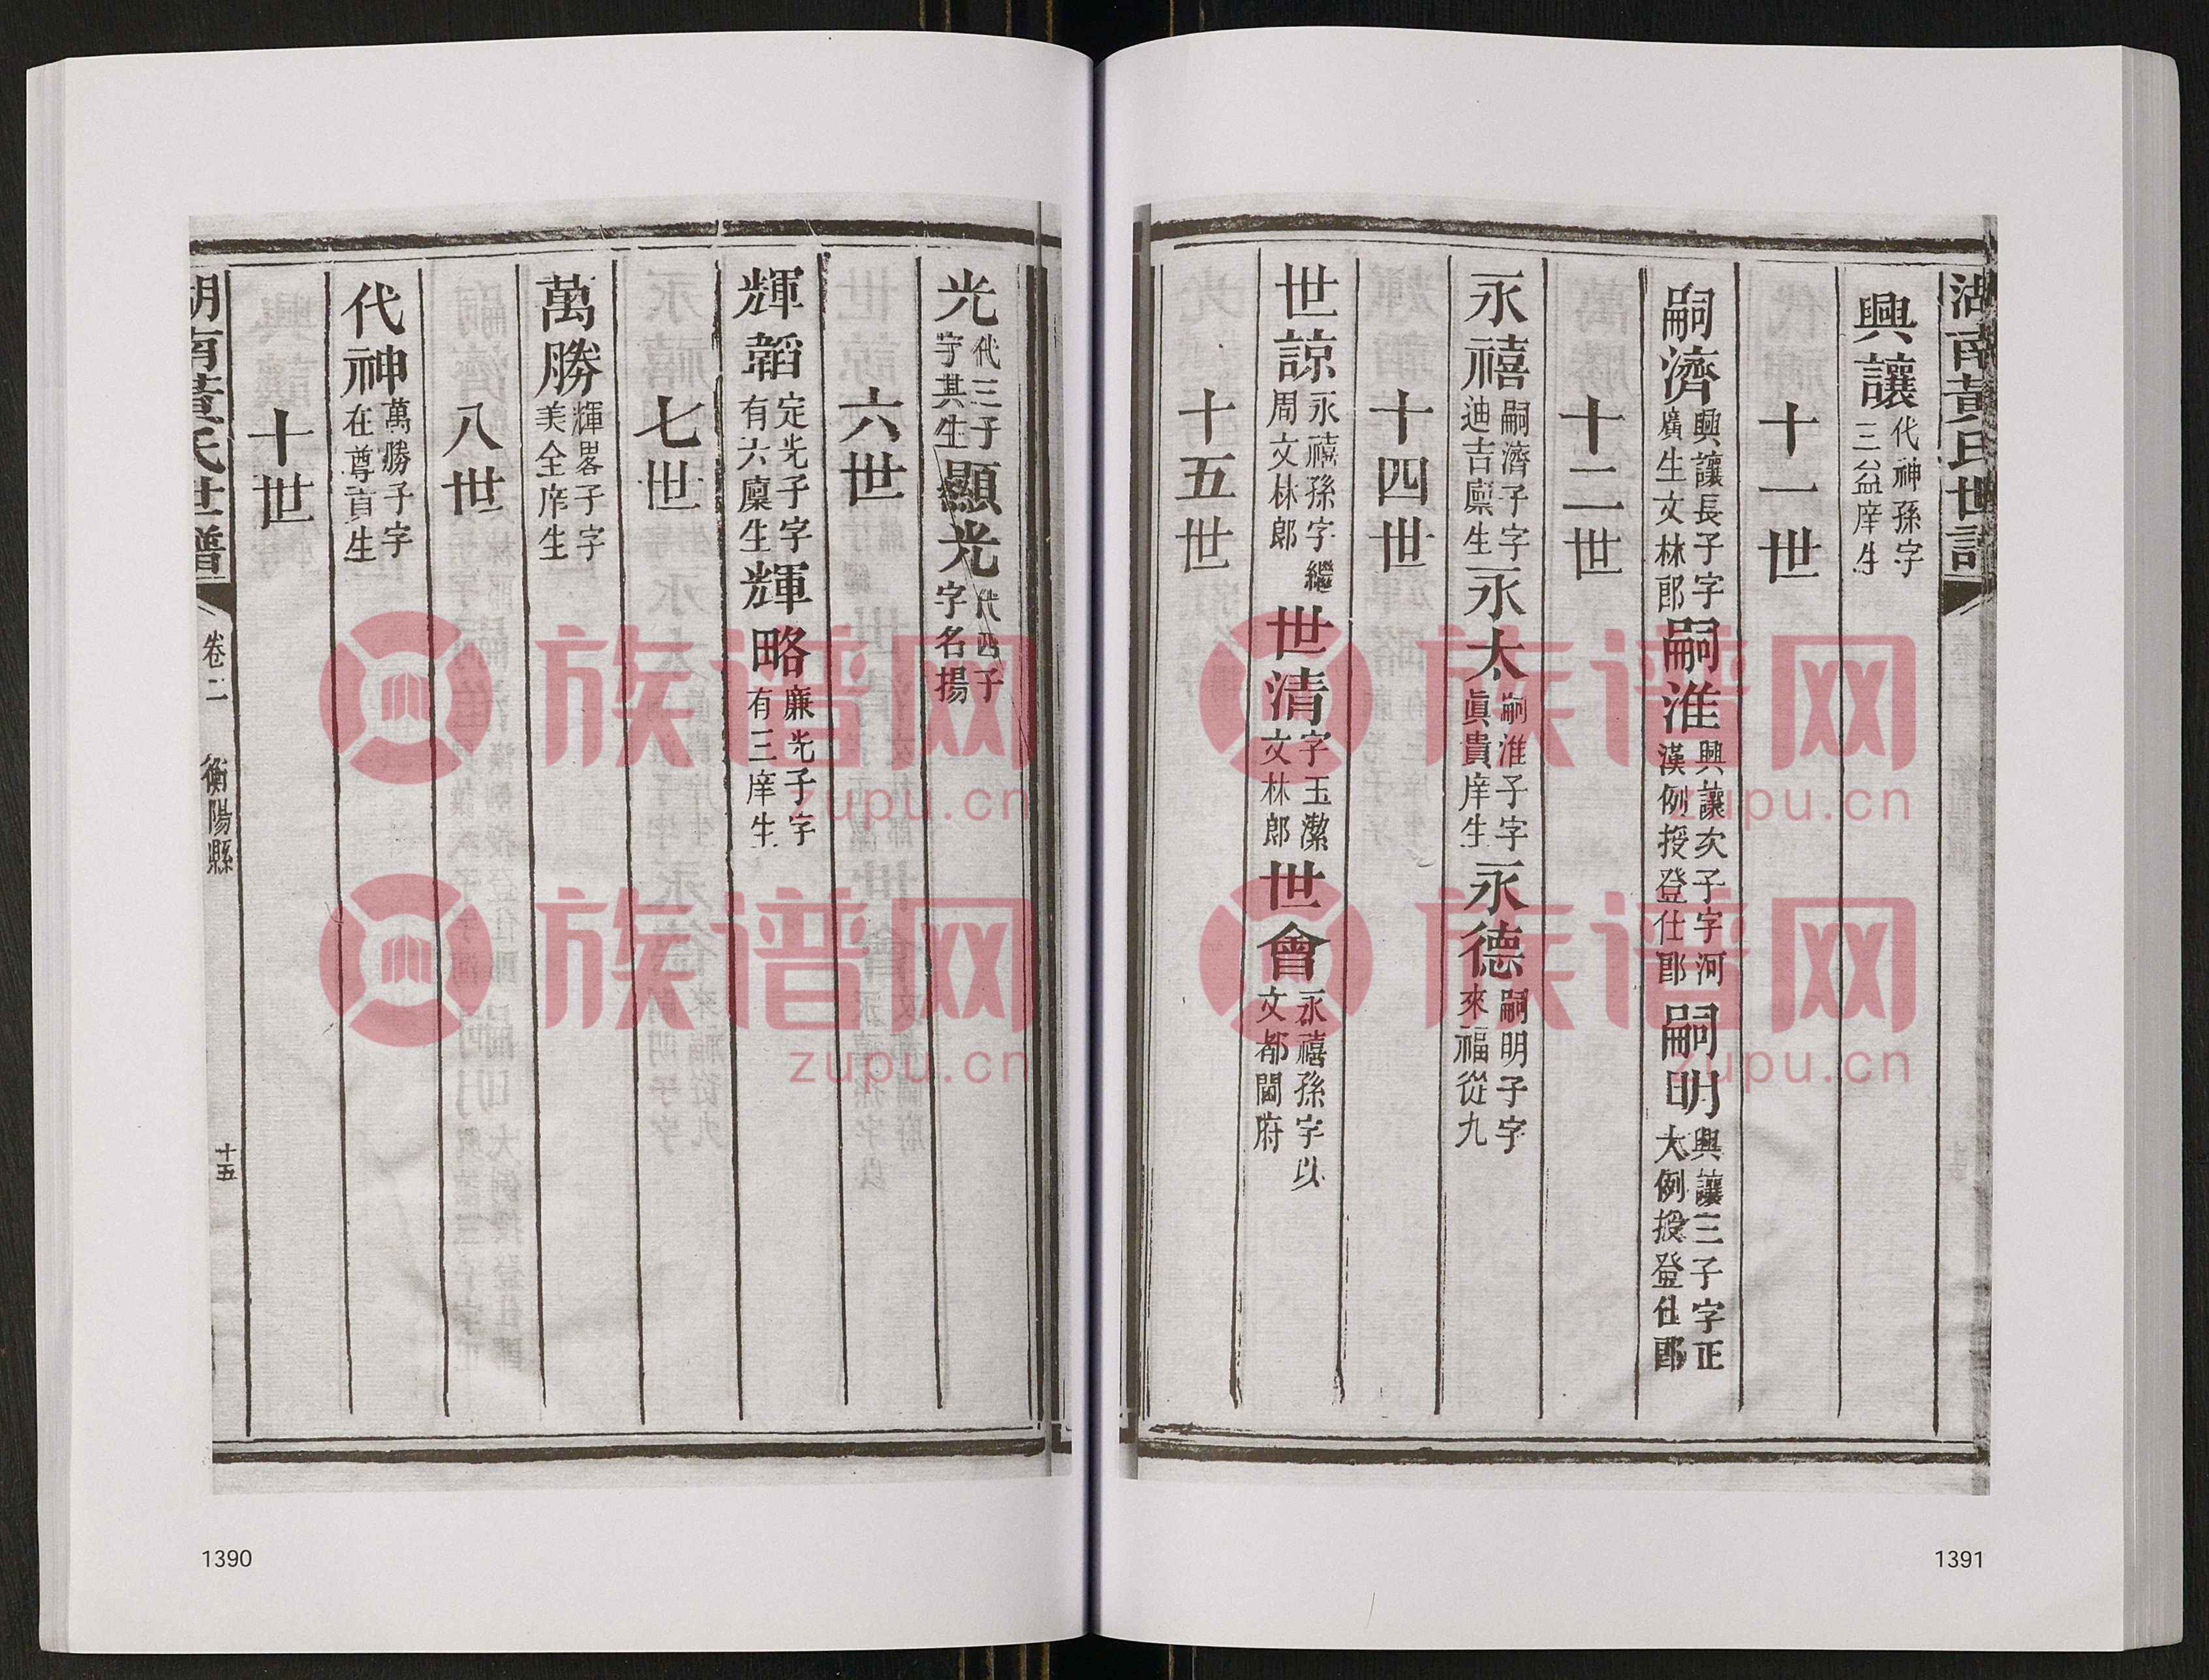 光代三子字其生顯光代四子字名揚
六世
輝韜定光子字有六廩生輝略廉光子字有三庠生
七世
萬勝輝畧子字美全庠生
八世
代神萬勝子字在尊貢生
十世
湖南黃氏世譜 卷二 衡陽縣 十五
1390
湖南黃氏世譜
興讓代神孫字三益庠生
十一世
嗣濟興讓長子字廣生文林郎嗣淮興讓次子字河漢例授登仕郎嗣明興讓三子字正大例授登仕郎
十二世
永禧嗣濟子字迪吉廩生永太嗣淮子字眞貴庠生永德嗣明子字來福從九
十四世
世諒永禧孫字繼周文林郎世清字玉潔文林郎世會永禧孫字以文都閫府
十五世
1391
族谱网
zupu.cn
族谱网
zupu.cn
族谱网
zupu.cn
族谱网
zupu.cn